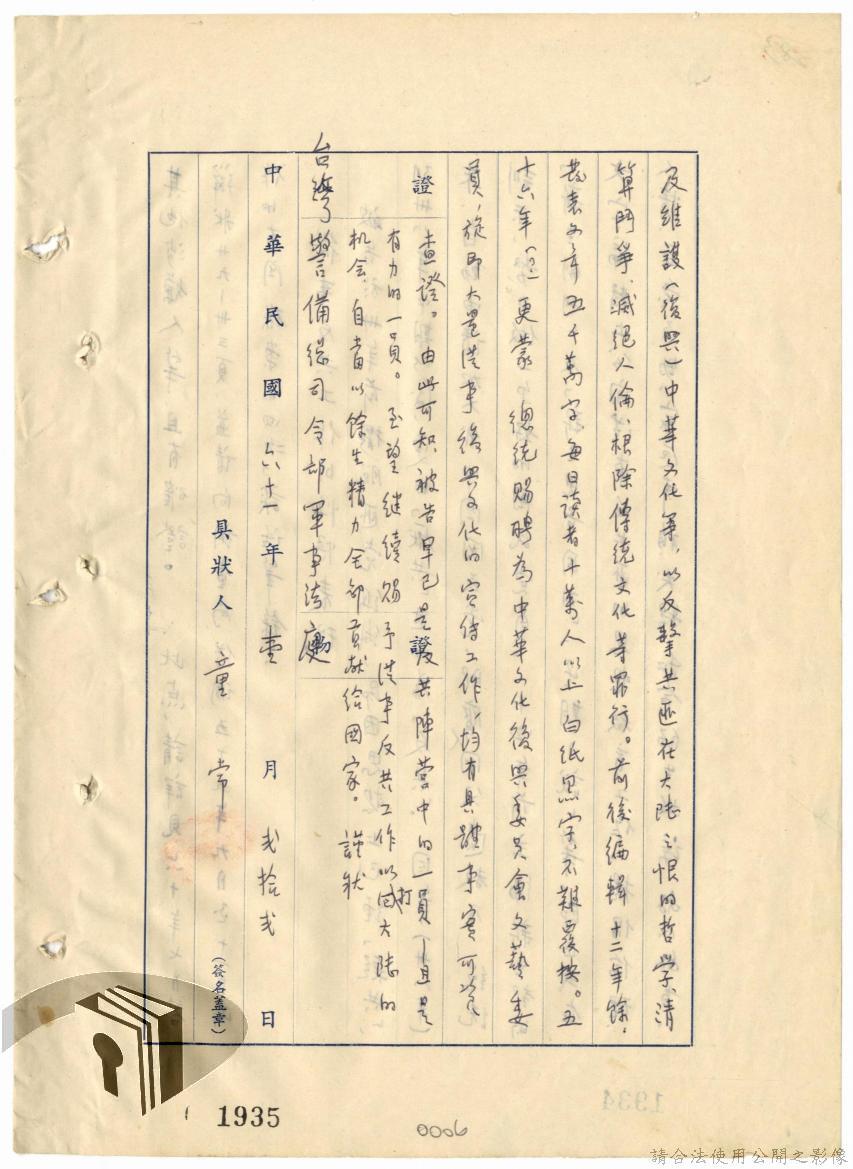 及維護(復興)中華文化等,以反擊共匪在大陸之恨的哲學、清
算鬥爭、滅絕人倫、根除傳統文化等罪行。前後編輯十二年餘,
發表文章五千萬字,每日讀者十萬人以上,白紙黑字,不難覆按。五
十六年 更蒙 總統賜聘為中華文化復興委員會文藝委
員,旋即大量從事復興文化的宣傳工作,均有具體事實可資
證 查證。由此可知,被告早已是反共陣營中的一員—且是
有力的一員。至望繼續賜予從事反共工作以打回大陸的
機會,自當以餘生精力全部貢獻給國家。 謹狀
證
台灣警備總司令部軍事法庭
中華民國六十一年 壹 月 貳拾貳 日
具狀人 童常 (簽名蓋章)
1935
0006
1934
請合法使用公開之影像